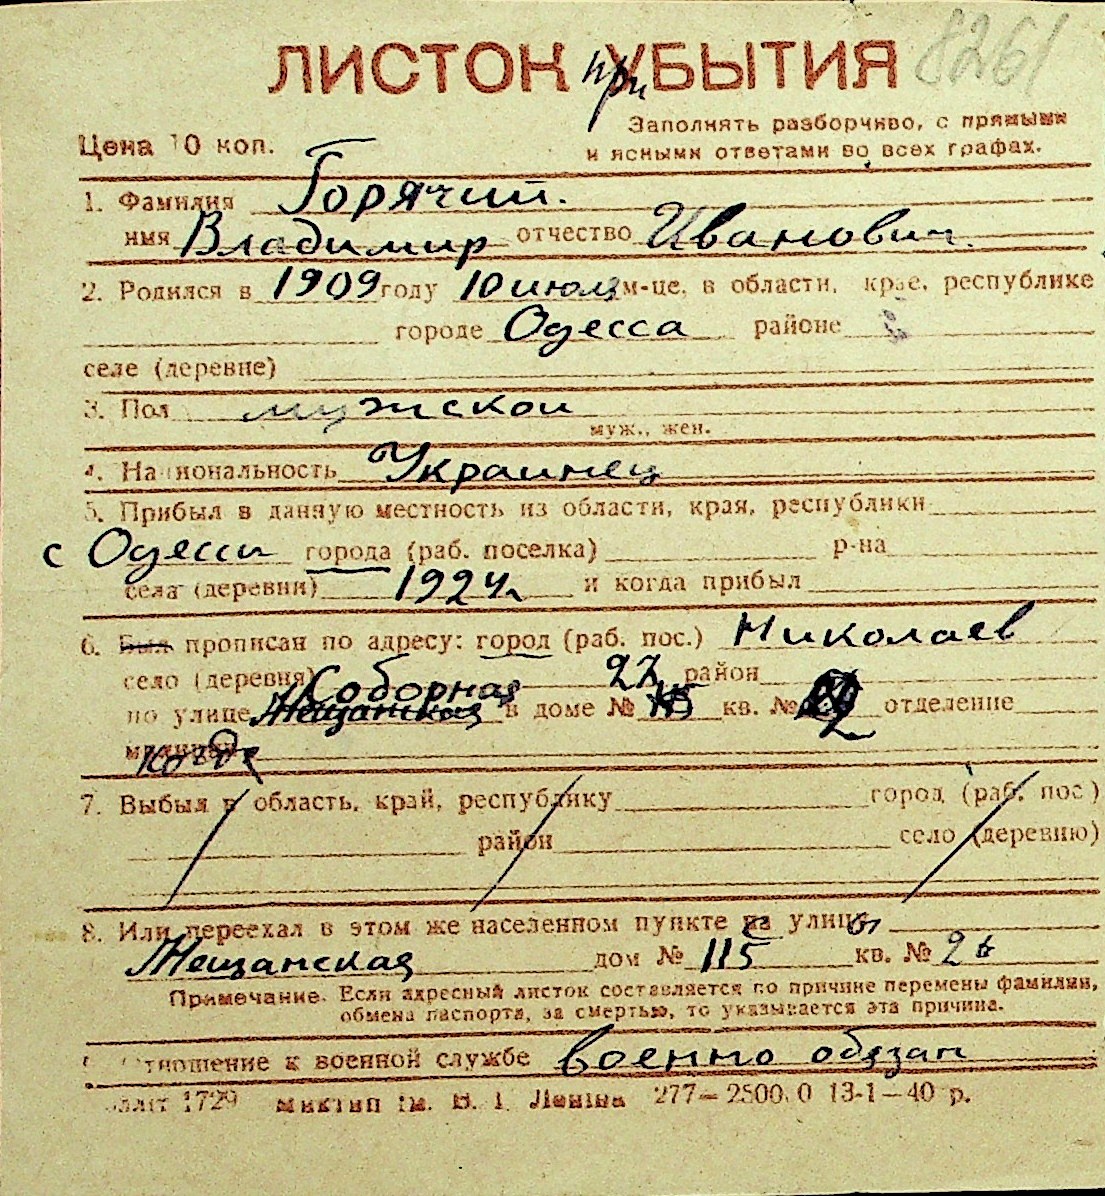 8261
ЛИСТОК при УБЫТИЯ
Заполнять разборчиво, с прямыми
Цена 10 коп. и ясными ответами во всех графах.
1. Фамилия Горячий.
имя Владимир отчество Иванович.
2. Родился в 1909 году 10 июля м-це, в области, крае, республике
городе Одесса районе
селе (деревне)
3. Пол мужской
муж., жен.
4. Национальность Украинец
5. Прибыл в данную местность из области, края, республики
с Одессы города (раб. поселка) р-на
села (деревни) 1924г и когда прибыл
6. Был прописан по адресу: город (раб. пос.) Николаев
село (деревня) Соборная 22 район
по улице Мещанская в доме № кв. № 2 отделение
милиции когда
7. Выбыл в область, край, республику город (раб. пос.)
район село (деревню)
8. Или переехал в этом же населенном пункте на улицу
Мещанская дом № 115 кв. № 26
Примечание. Если адресный листок составляется по причине перемены фамилии,
обмена паспорта, за смертью, то указывается эта причина.
отношение к военной службе военно обязан
1729 им. В. І. Леніна 277—2500.0 13-1—40 р.